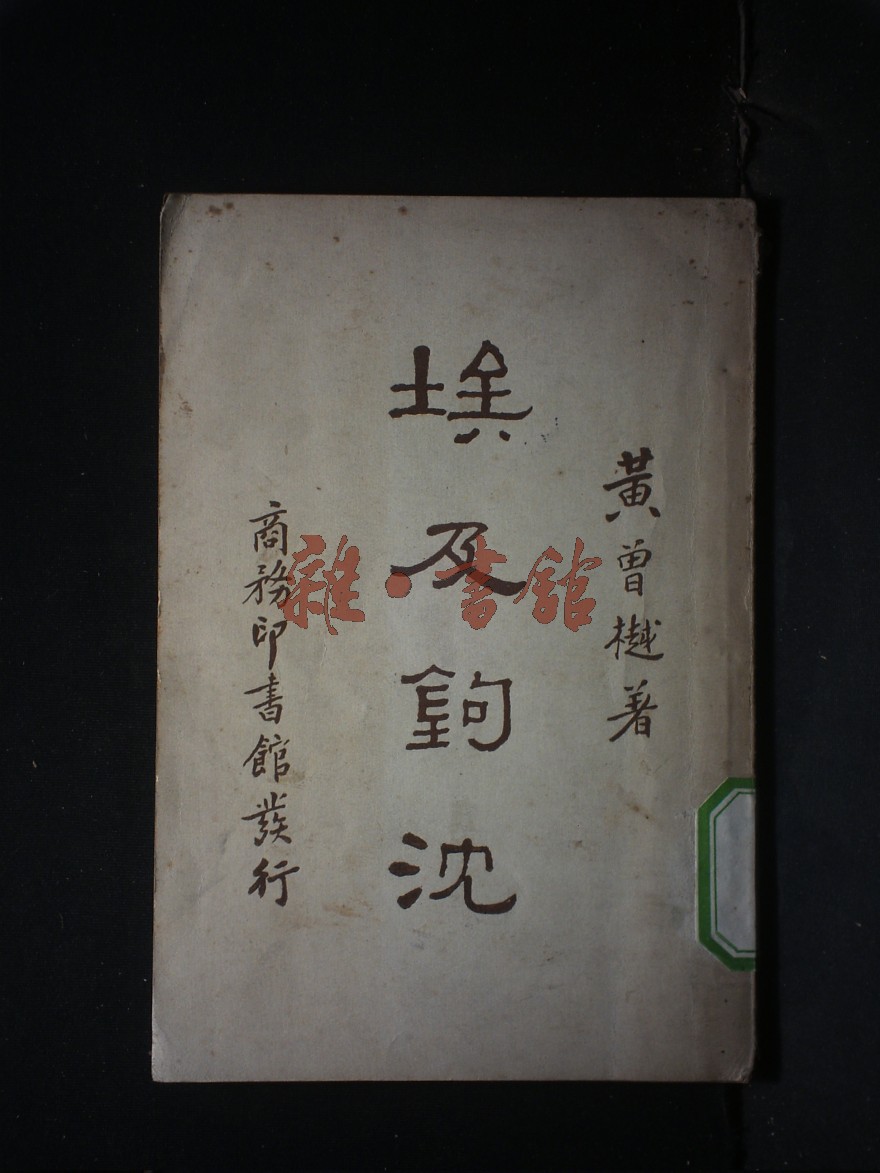 黃曾樾著
埃及鉤沈
商務印書館發行
雜·書館